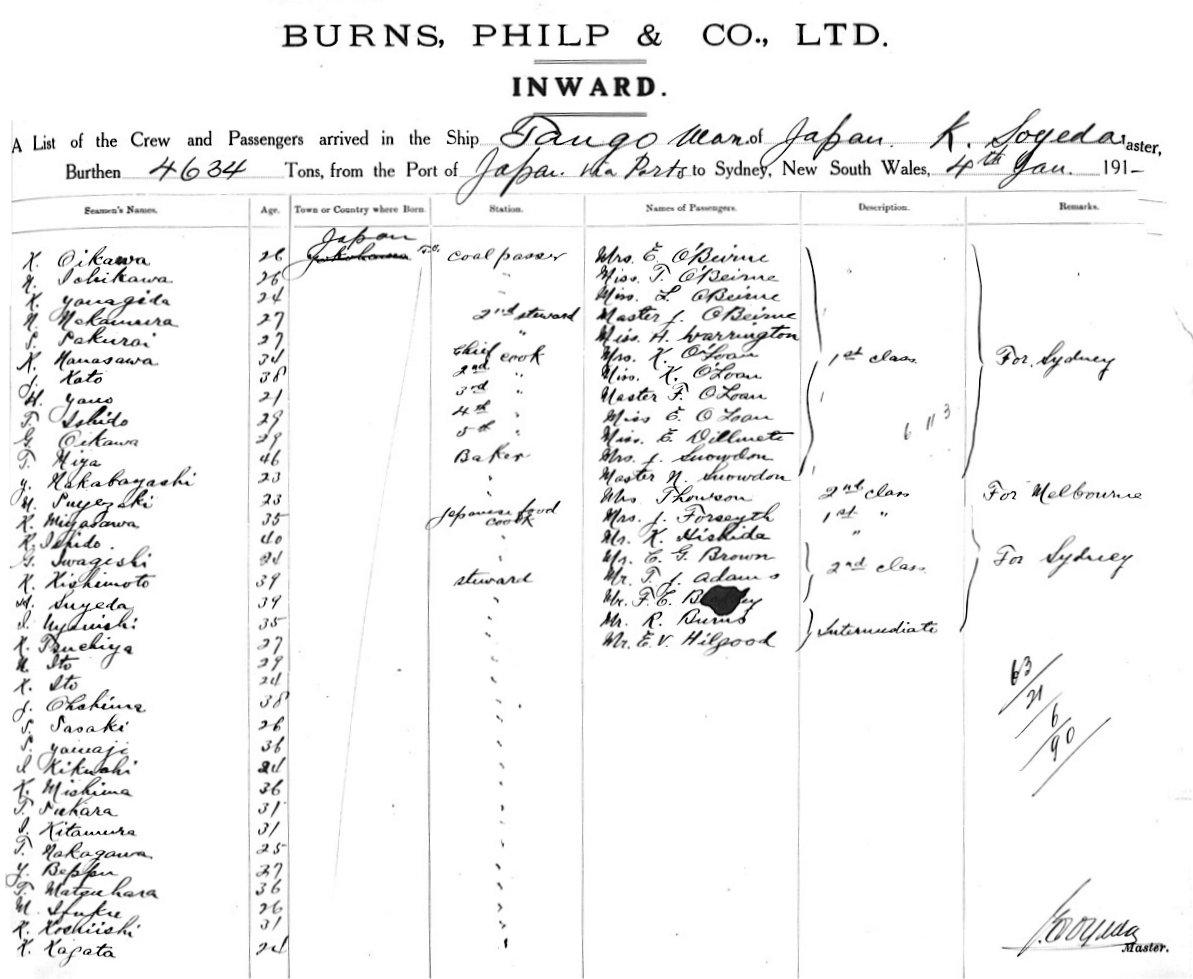 BURNS, PHILP & CO., LTD.
INWARD.
A List of the Crew and Passengers arrived in the Ship Tango Maru of Japan. K. Soyeda Master,
Burthen 4634 Tons, from the Port of Japan via Ports to Sydney, New South Wales, 4th Jan. 191-
Seamen's Names. Age. Town or Country where Born. Station. Names of Passengers. Description. Remarks.
Japan
K. Oikawa 26 Yokohama coal passer Mrs. E. O'Beirne
K. Ichikawa 26 " Miss. T. O'Beirne
K. Yanagida 24 " Miss. L. O'Beirne
N. Nakamura 27 2nd steward Master J. O'Beirne
S. Sakurai 27 " Miss. H. Warrington
K. Hanasawa 34 Chief cook Mrs. K. O'Loan 1st class For Sydney
J. Kato 38 2nd " Miss. K. O'Loan
H. Yano 21 3rd " Master F. O'Loan
T. Ishido 29 4th " Miss E. O'Loan 6 11 3
G. Oikawa 29 5th " Miss. E.
T. Miya 46 Baker Mrs. J. Snowdon
Y. Nakabayashi 23 " Master N. Snowdon
23 " Mrs. Thowson 2nd class For Melbourne
K. Miyasawa 35 Japanese food cook Mrs. J. Forseyth 1st "
K. Ishido. 40 " Mr. K. Hishida "
G. Iwagishi 24 " Mr. C. G. Brown 2nd class For Sydney
K. Kishimoto 39 steward Mr. T. J. Adams
H. Suyeda 39 " Mr. F. E.
35 " Mr. R. Burns Intermediate
K. Tsuchiya 27 " Mr. E. V. Hilgood
N. Ito 29 "
K. Ito 24 " 63
J. Ohshima 38 " 21
S. Sasaki 26 " 6
S. Yamaji 36 " 90
I. Kikuchi 24 "
K. Mishima 36 "
T. 31 "
I. Kitamura 31 "
T. Nakagawa 25 "
Y. Beppu 27 "
T. Matsuhara 36 "
M. 26 "
K. Koshiishi 31 "
K. Kagata 24 "
Soyeda
Master.